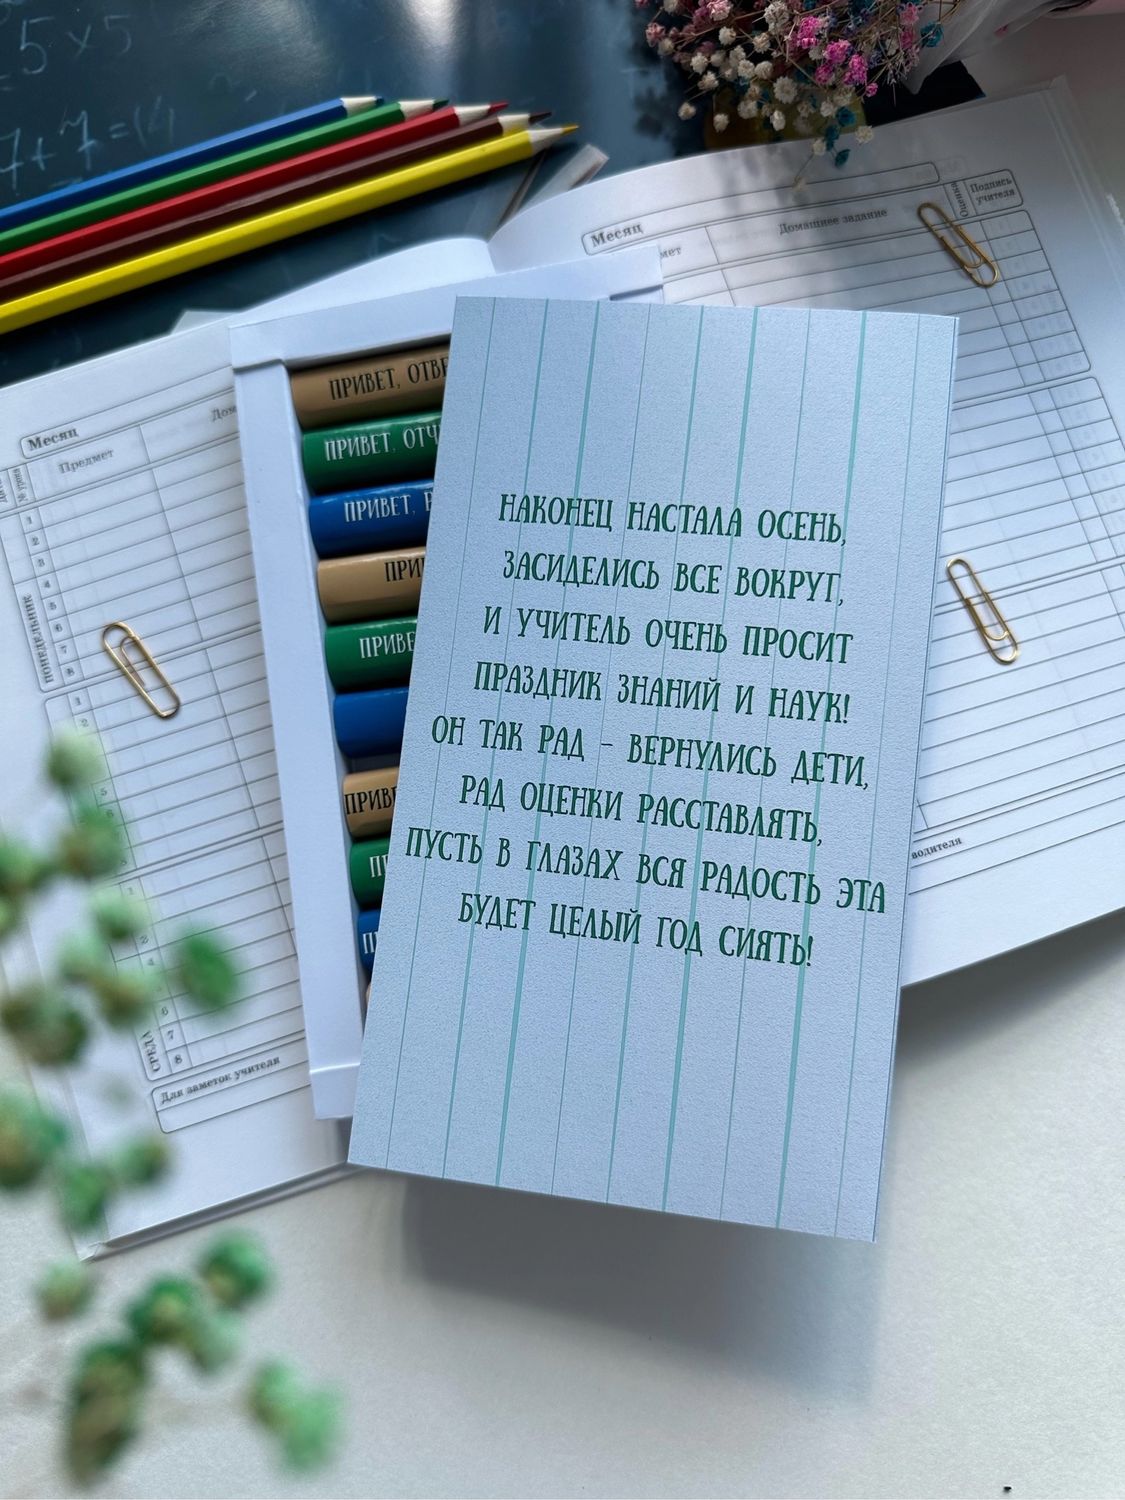 5 x 5
7+7=14
Месяц
Домашнее задание
Оценка
Подпись
учителя
Месяц
Предмет
№ урока
ПОНЕДЕЛЬНИК
1
2
3
4
5
6
7
8
1
2
5
1
2
4
6
7
8
СРЕДА
Для заметок учителя
ПРИВЕТ,
ПРИВЕТ,
ПРИВЕТ,
НАКОНЕЦ НАСТАЛА ОСЕНЬ,
ЗАСИДЕЛИСЬ ВСЕ ВОКРУГ,
И УЧИТЕЛЬ ОЧЕНЬ ПРОСИТ
ПРАЗДНИК ЗНАНИЙ И НАУК!
ОН ТАК РАД - ВЕРНУЛИСЬ ДЕТИ,
РАД ОЦЕНКИ РАССТАВЛЯТЬ,
ПУСТЬ В ГЛАЗАХ ВСЯ РАДОСТЬ ЭТА
БУДЕТ ЦЕЛЫЙ ГОД СИЯТЬ!